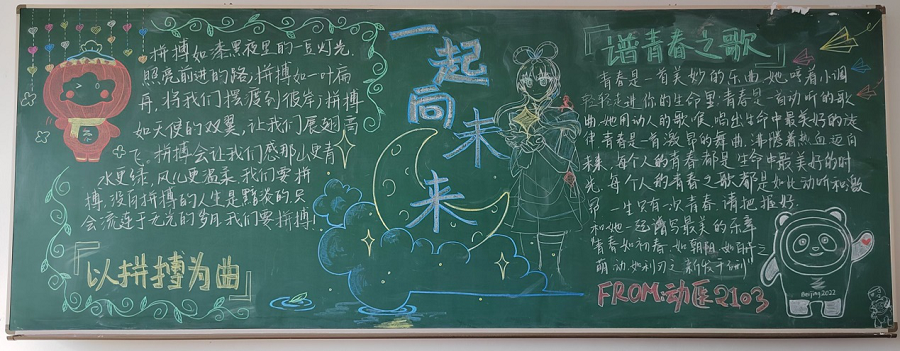 拼搏如漆黑夜里的一豆灯光,
照亮前进的路;拼搏如一叶扁
舟,将我们摆渡到彼岸;拼搏
如天使的双翼,让我们展翅高
飞。拼搏会让我们感那山更青
水更绿,风儿更温柔,我们要拼
搏,没有拼搏的人生是黯淡的,只
会流连于无光的岁月,我们要拼搏!
『以拼搏为曲』
一起
向
未
来
『谱青春之歌』
青春是一首美妙的乐曲,她哼着小调
轻轻走进你的生命里;青春是一首动听的歌
曲,她用动人的歌喉,唱出生命中最美好的旋
律;青春是一首激昂的舞曲,沸腾着热血迈向
未来。每个人的青春都是生命中最美好的时
光,每个人的青春之歌都是如此动听和激
昂,一生只有一次青春,请把握好,
和她一起谱写最美的乐章
"青春如初春,如朝阳,如百卉之
萌动,如利刃之新发于硎"
FROM:动医2103
Beijing 2022